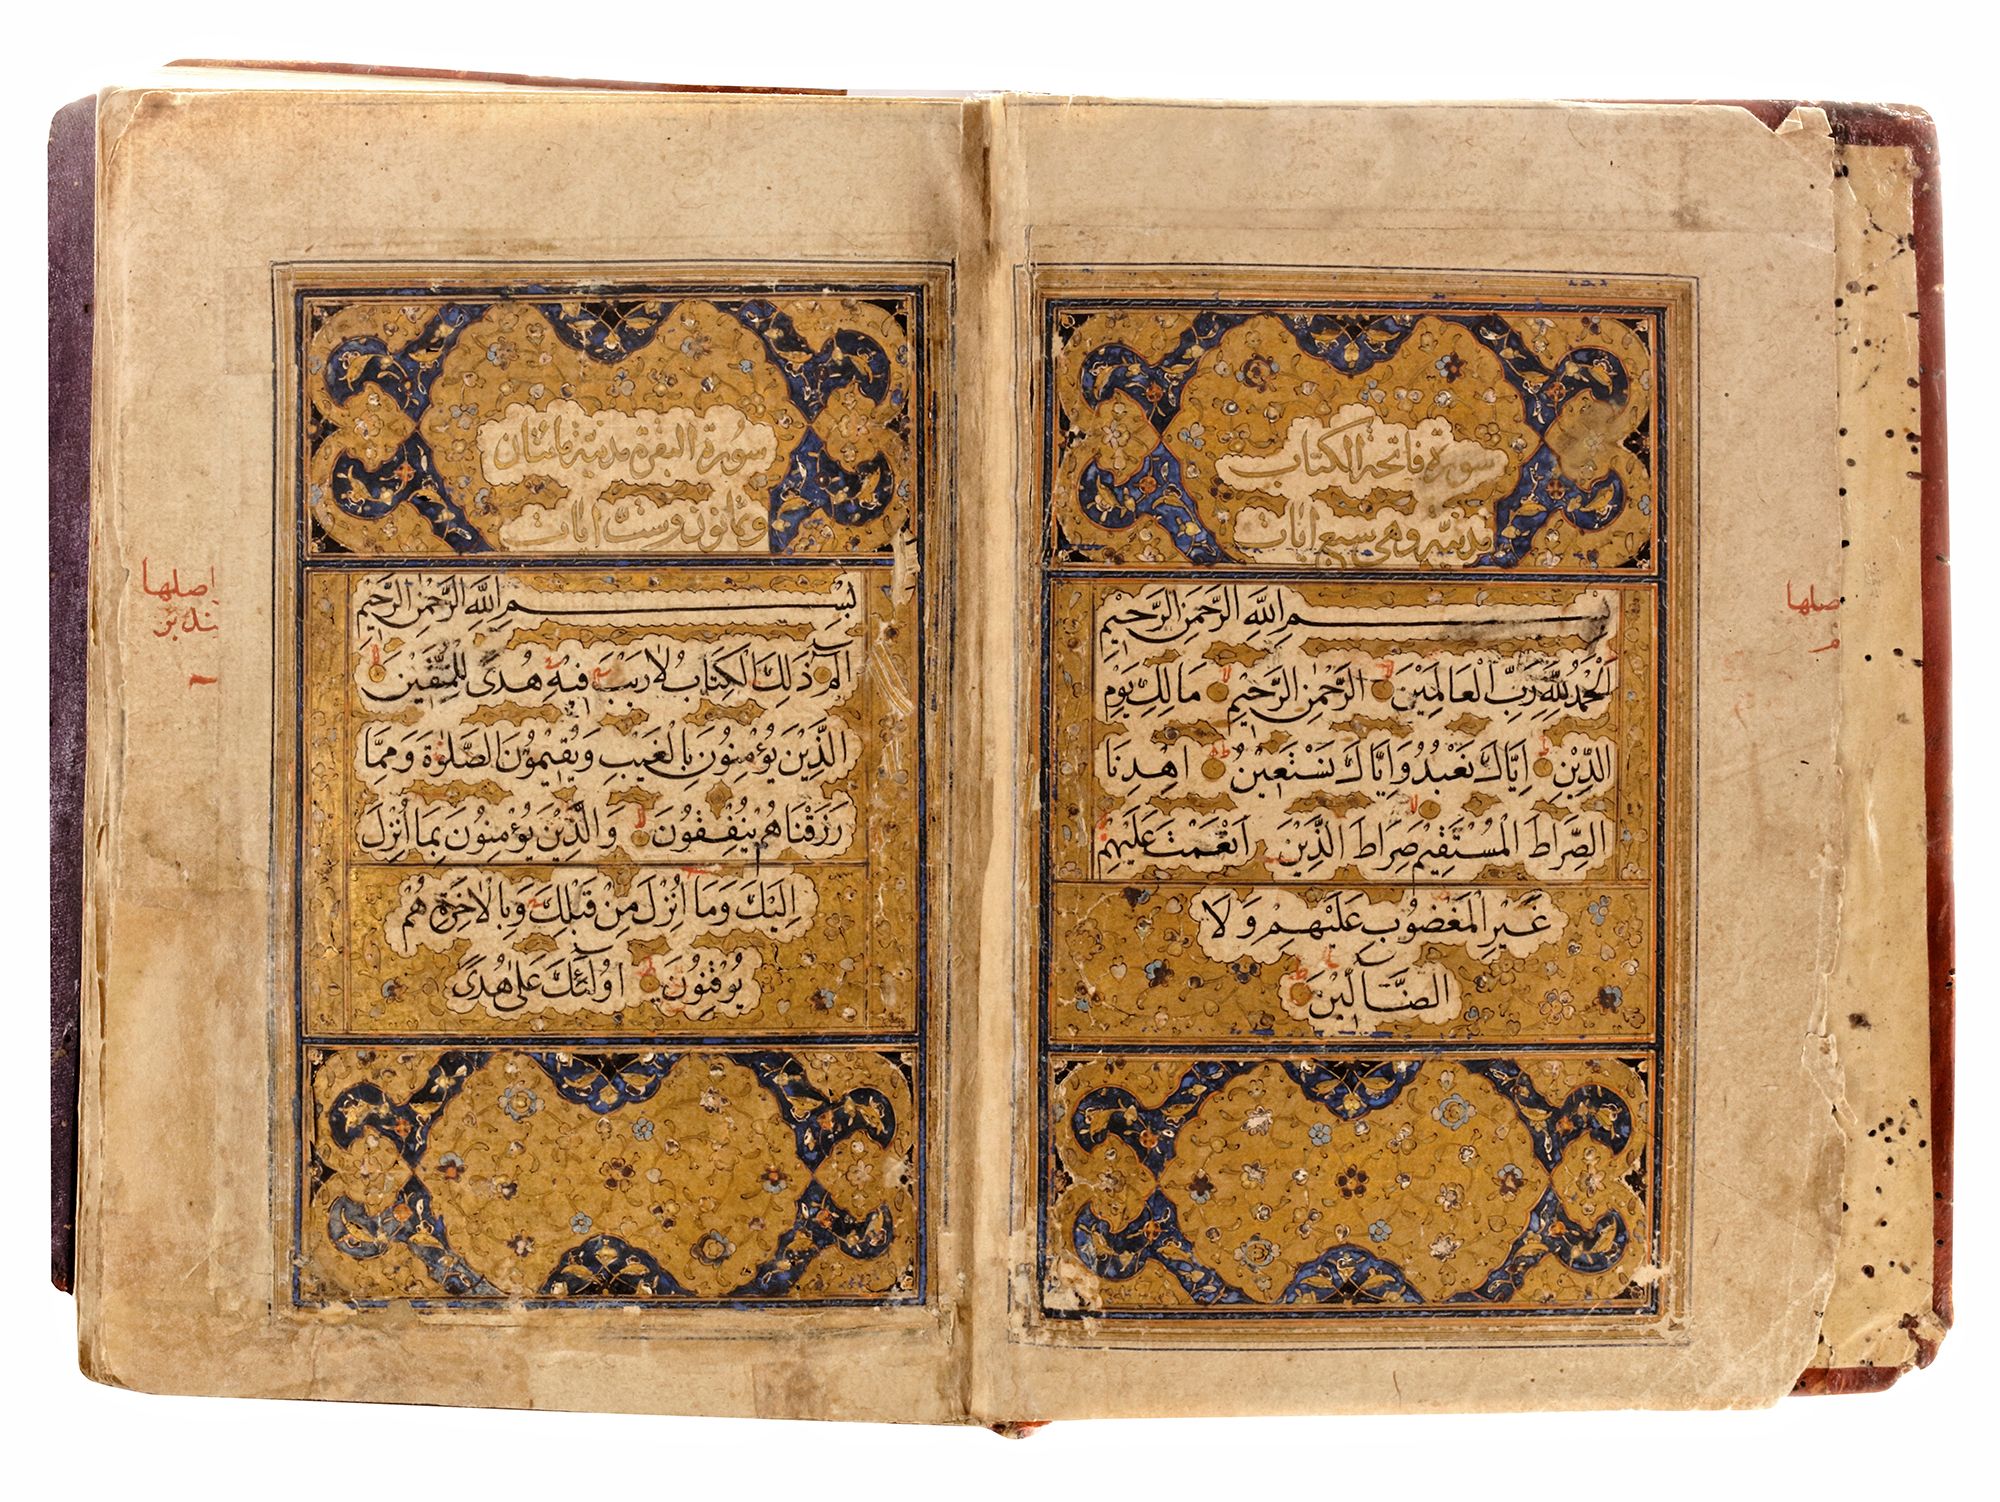 سورة فاتحة الكتاب
مدنية وهي سبع ايات
بِسْمِ اللَّهِ الرَّحْمٰنِ الرَّحِيْمِ
اَلْحَمْدُ لِلَّهِ رَبِّ الْعَالَمِيْنَ الرَّحْمٰنِ الرَّحِيْمِ مَالِكِ يَوْمِ
الدِّيْنِ اِيَّاكَ نَعْبُدُ وَاِيَّاكَ نَسْتَعِيْنُ اِهْدِنَا
الصِّرَاطَ الْمُسْتَقِيْمَ صِرَاطَ الَّذِيْنَ اَنْعَمْتَ عَلَيْهِمْ
غَيْرِ الْمَغْضُوْبِ عَلَيْهِمْ وَلَا
الضَّالِّيْنَ
صلها
سورة البقرة مدنية مائتان
وثمانون وست ايات
بِسْمِ اللَّهِ الرَّحْمٰنِ الرَّحِيْمِ
الم ذٰلِكَ الْكِتَابُ لَا رَيْبَ فِيْهِ هُدًى لِلْمُتَّقِيْنَ
الَّذِيْنَ يُؤْمِنُوْنَ بِالْغَيْبِ وَيُقِيْمُوْنَ الصَّلٰوةَ وَمِمَّا
رَزَقْنَاهُمْ يُنْفِقُوْنَ وَالَّذِيْنَ يُؤْمِنُوْنَ بِمَا اُنْزِلَ
اِلَيْكَ وَمَا اُنْزِلَ مِنْ قَبْلِكَ وَبِالْاٰخِرَةِ هُمْ
يُوْقِنُوْنَ اُولٰئِكَ عَلٰى هُدًى
اصلها